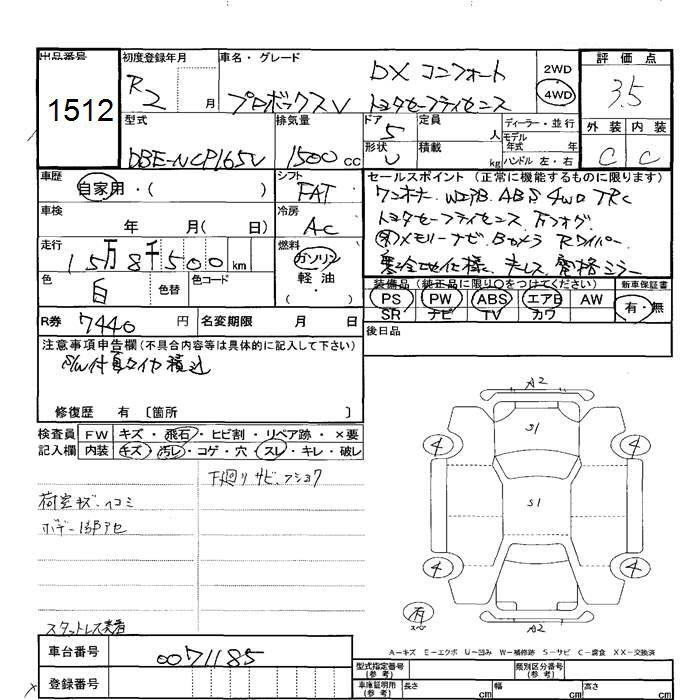 出品番号
1512
初度登録年月
R2 月
車名・グレード
DX コンフォート
プロボックスV トヨタセーフティセンス
2WD
4WD
評価点
3.5
外装 内装
C C
型式
DBE-NCP165V
排気量
1500 cc
ドア
5
形状
V
定員
人
積載
kg
ディーラー・並行
モデル
年式 年
ハンドル 左・右
車歴
自家用・( )
シフト
FAT
車検
年 月( 日)
冷房
AC
走行
15万8千500km
燃料
ガソリン
軽油
・( )
色
白
色替
色コード
セールスポイント (正常に機能するものに限ります)
ワンオーナー WエアB ABS 4WD TRC
トヨタセーフティセンス Fフォグ
メモリーナビ Bカメラ Rワイパー
寒冷地仕様 キーレス 電格ミラー
装備品 (純正品に限り○をつけてください)
PS PW ABS エアB AW
SR ナビ TV カワ
新車保証書
有・無
R券 7440 円
名変期限 月 日
後日品
注意事項申告欄(不具合内容等は具体的に記入して下さい)
S/W付夏タイヤ積込
修復歴 有 〔箇所 〕
検査員
記入欄
FW キズ・飛石・ヒビ割・リペア跡・×要
内装 キズ・汚レ・コゲ・穴・スレ・キレ・破レ
下廻りサビ、フショク
荷室キズ・ヘコミ
ボデー1部アセ
スタットレス実着
A2
S1
4 4
S1
4 4
有
スペ
A2
A=キズ E=エクボ U=凹み W=補修跡 S=サビ C=腐食 XX=交換済
車台番号
0071185
登録番号
型式指定番号
(参考)
類別区分番号
(参考)
車庫証明用
(参考)
長さ cm
幅 cm
高さ cm